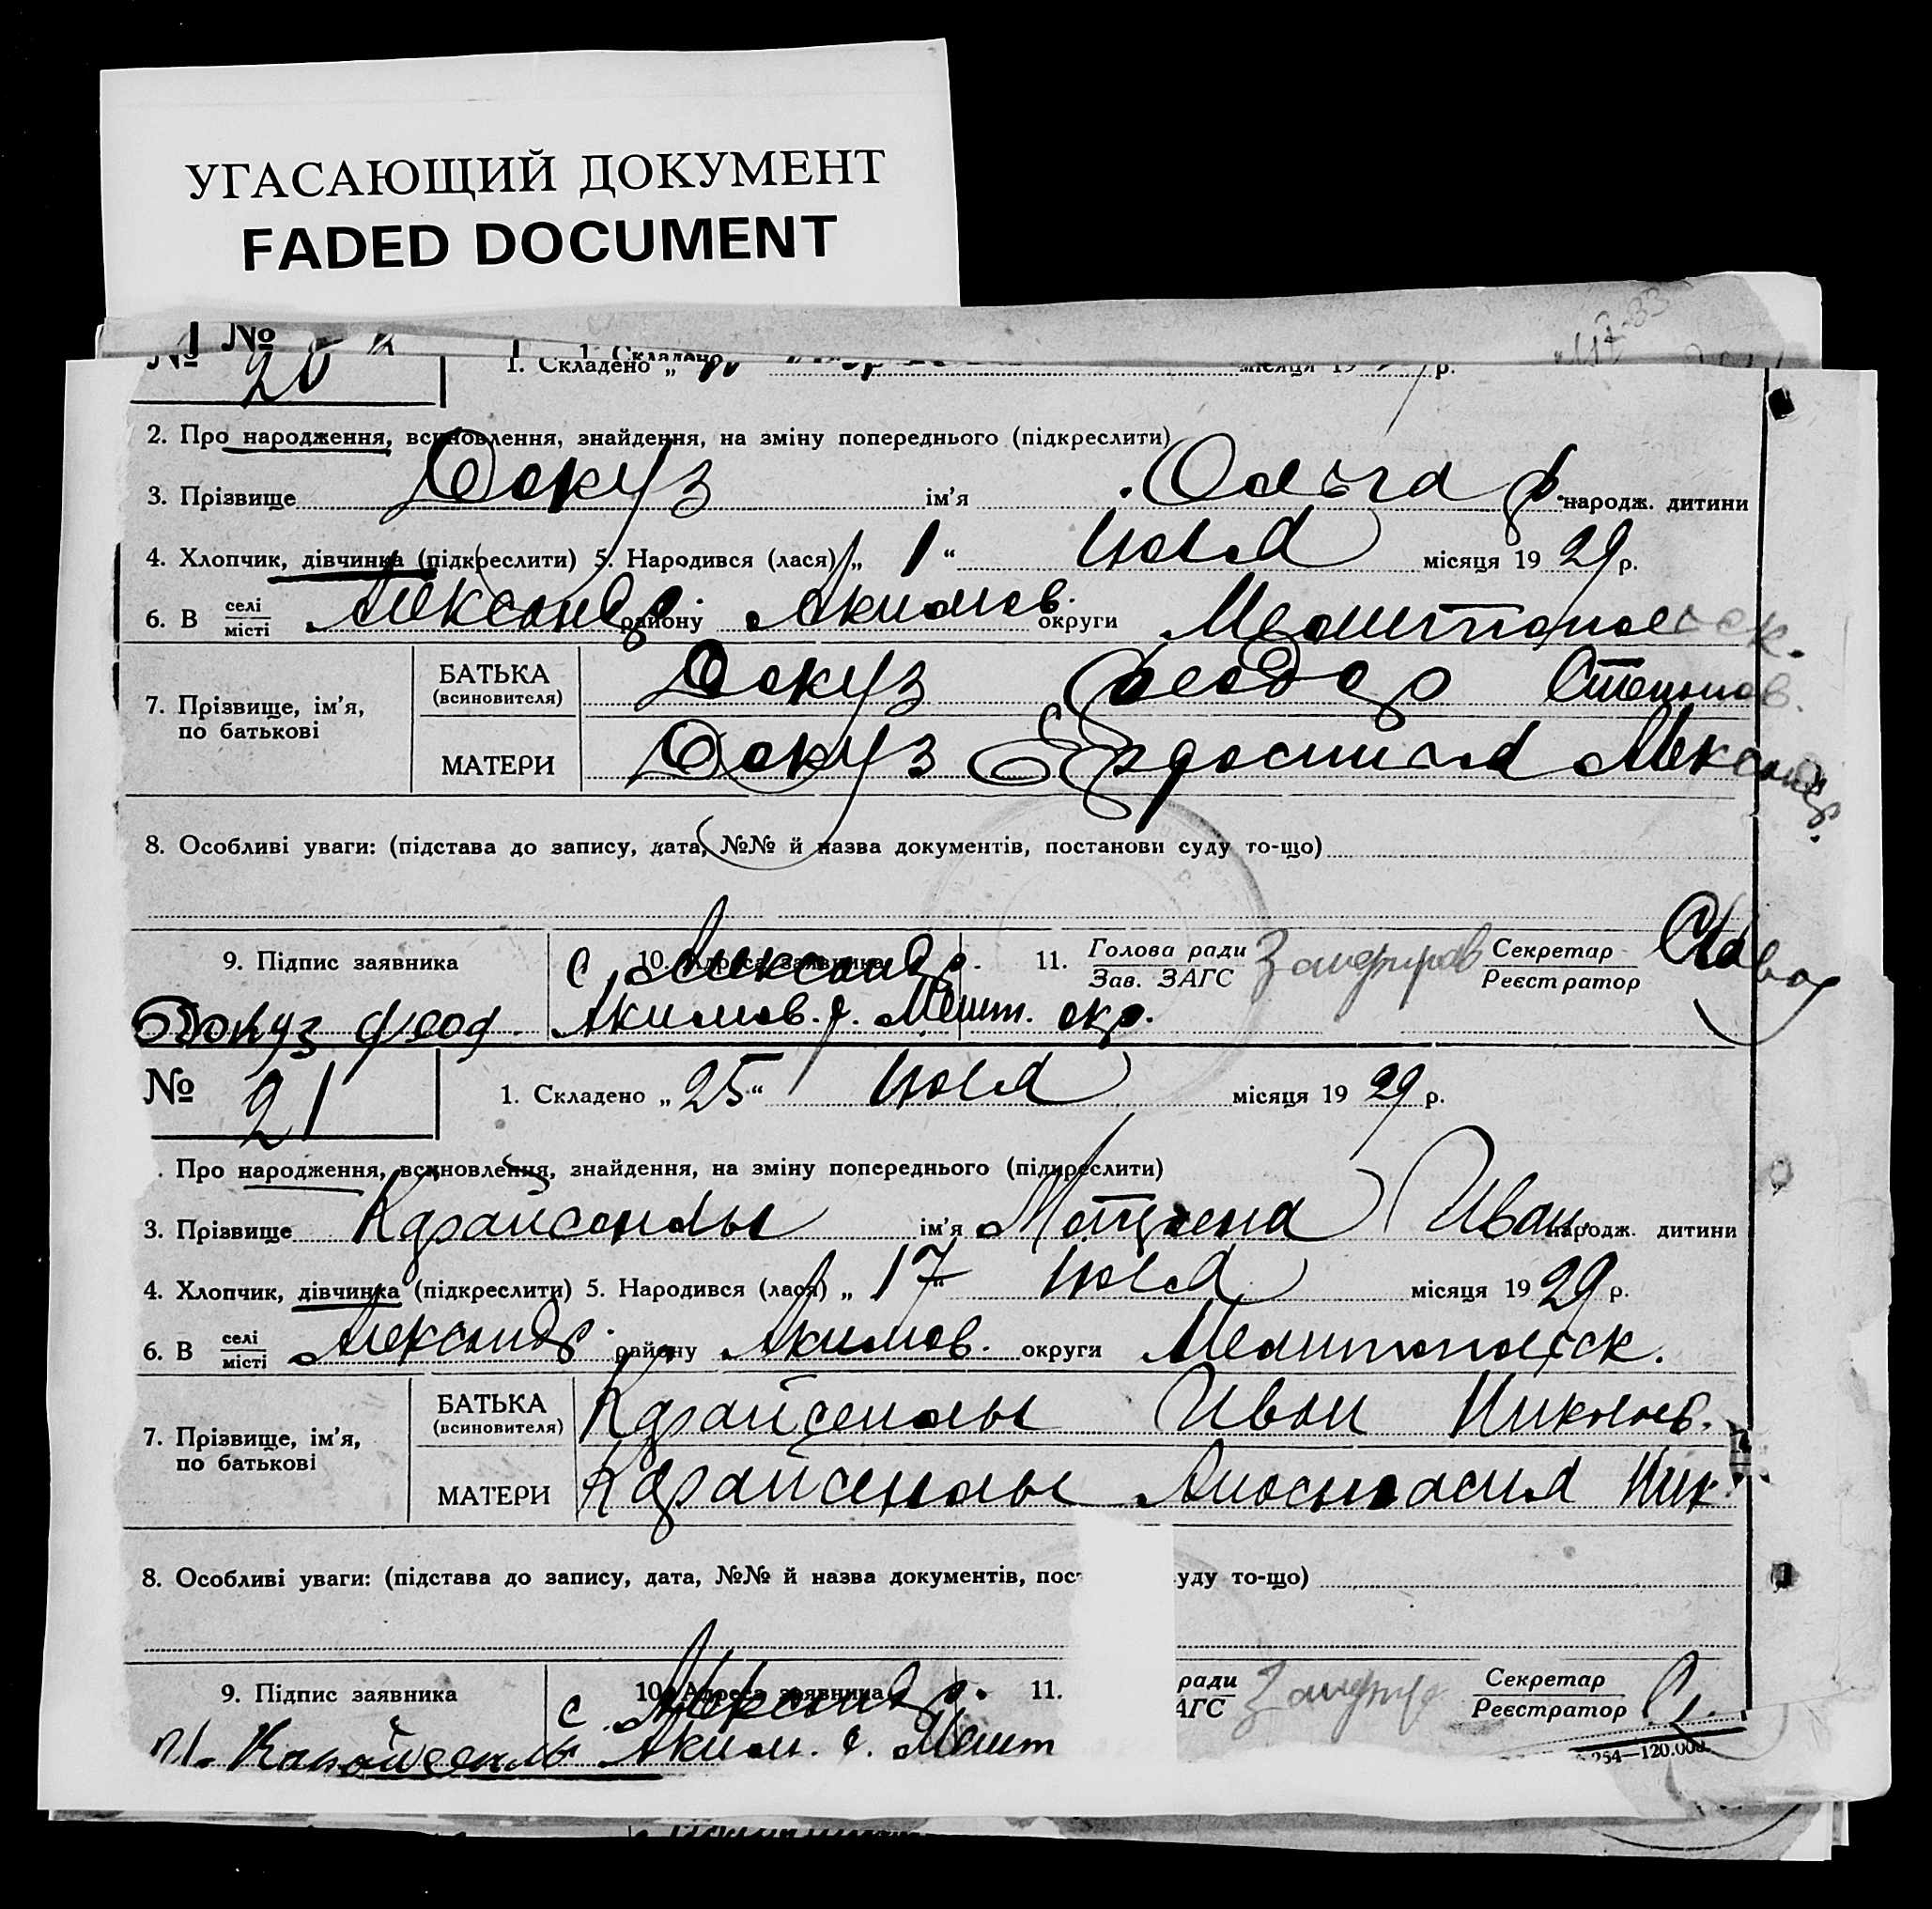 УГАСАЮЩИЙ ДОКУМЕНТ
FADED DOCUMENT
№
№ 20 1. Складено „ місяця 19 р.
2. Про народження, всиновлення, знайдення, на зміну попереднього (підкреслити)
3. Прізвище Докуз ім'я Ольга Ф. народж. дитини
4. Хлопчик, дівчинка (підкреслити) 5. Народився (лася) „ 1 “ июля місяця 19 29 р.
6. В селі місті Александр. району Акимов. округи Мелитопольск.
7. Прізвище, ім'я, по батькові
БАТЬКА (всиновителя) Докуз Феодор Степанов.
МАТЕРИ Докуз Александр.
8. Особливі уваги: (підстава до запису, дата, №№ й назва документів, постанови суду то-що)
9. Підпис заявника 10. Адреса заявника с. Александр. 11. Голова ради Зав. ЗАГС Секретар Реєстратор
Докуз Феод. Акимов. р. Мелит. окр.
№ 21 1. Складено „ 25 “ июля місяця 19 29 р.
. Про народження, всиновлення, знайдення, на зміну попереднього (підкреслити)
3. Прізвище ім'я Матрена Иван. народж. дитини
4. Хлопчик, дівчинка (підкреслити) 5. Народився (лася) „ 17 “ июля місяця 19 29 р.
6. В селі місті Александр. району Акимов. округи Мелитопольск.
7. Прізвище, ім'я, по батькові
БАТЬКА (всиновителя) Иван Никол.
МАТЕРИ Анастасия Ник.
8. Особливі уваги: (підстава до запису, дата, №№ й назва документів, пос уду то-що)
9. Підпис заявника 10. Адреса заявника с. Александр. 11. ради АГС Секретар Реєстратор
Аким. р. Мелит
254—120.000.